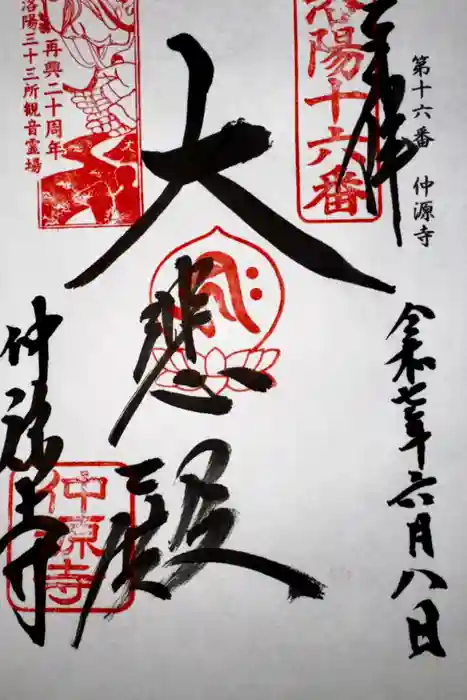 奉拝
第十六番 仲源寺
令和七年六月八日
洛陽十六番
大悲殿
再興二十周年
洛陽三十三所観音霊場
仲源寺
仲源寺